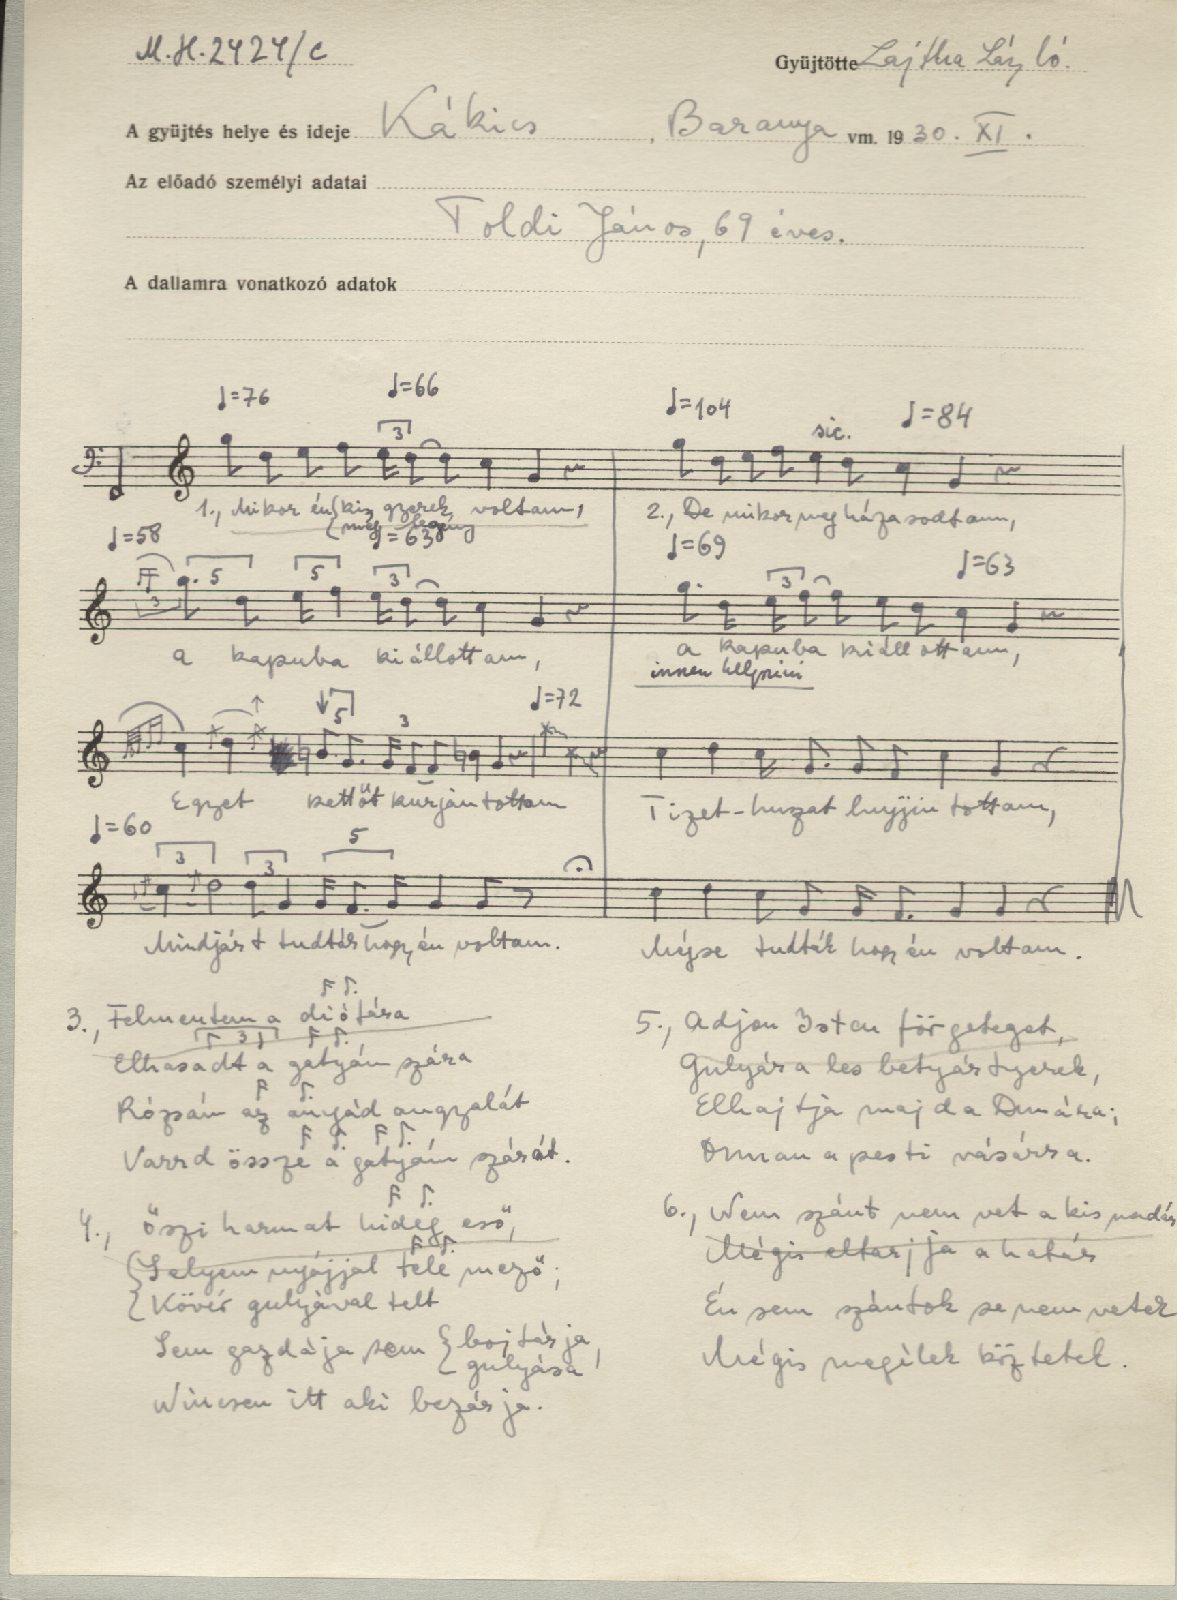 M.H.2424/c
Gyüjtötte Lajtha László.
A gyüjtés helye és ideje Kákics, Baranya vm. 1930. XI.
Az előadó személyi adatai
Toldi János, 69 éves.
A dallamra vonatkozó adatok
♩=76 ♩=66 ♩=104 sic. ♩=84
3
1., Mikor én {kis gyerek voltam, 2., De mikor megházasodtam,
{még legény
♩=58 ♩=63 ♩=69 ♩=63
3 5 5 3 3
a kapuba kiállottam, a kapuba kiállottam,
innen
♩=72
5 3
Egyet kettőt kurjántottam Tizet-huszat tottam,
♩=60
3 3 5
Mindjárt tudták hogy én voltam. Mégse tudták hogy én voltam.
3., Felmentem a diófára
3
Elhasadt a gatyám szára
Rózsám az anyád angyalát
Varrd össze a gatyám szárát.
4., őszi harmat hideg eső,
{Selyem nyájjal tele mező;
{Kövér gulyával telt
Sem gazdája sem {bojtárja,
{gulyása
Nincsen itt aki bezárja.
5., Adjon Isten förgeteget,
Gulyára les betyárgyerek,
Elhajtja majd a Dunára;
Onnan a pesti vásárra.
6., Nem szánt nem vet a kis madár
Mégis eltartja a határ
Én sem szántok se nem vetek
Mégis megélek köztetek.